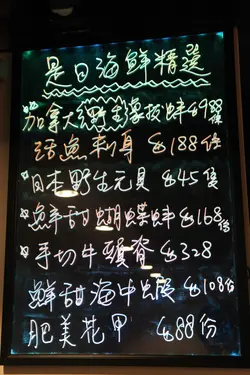 是日海鮮精選
加拿大野生象拔蚌$988條
活魚刺身 $188份
日本野生元貝 $45隻
鮮甜蝴蝶蚌$168份
手切牛頸脊 $328
鮮甜海中蝦 $108份
肥美花甲 $88份